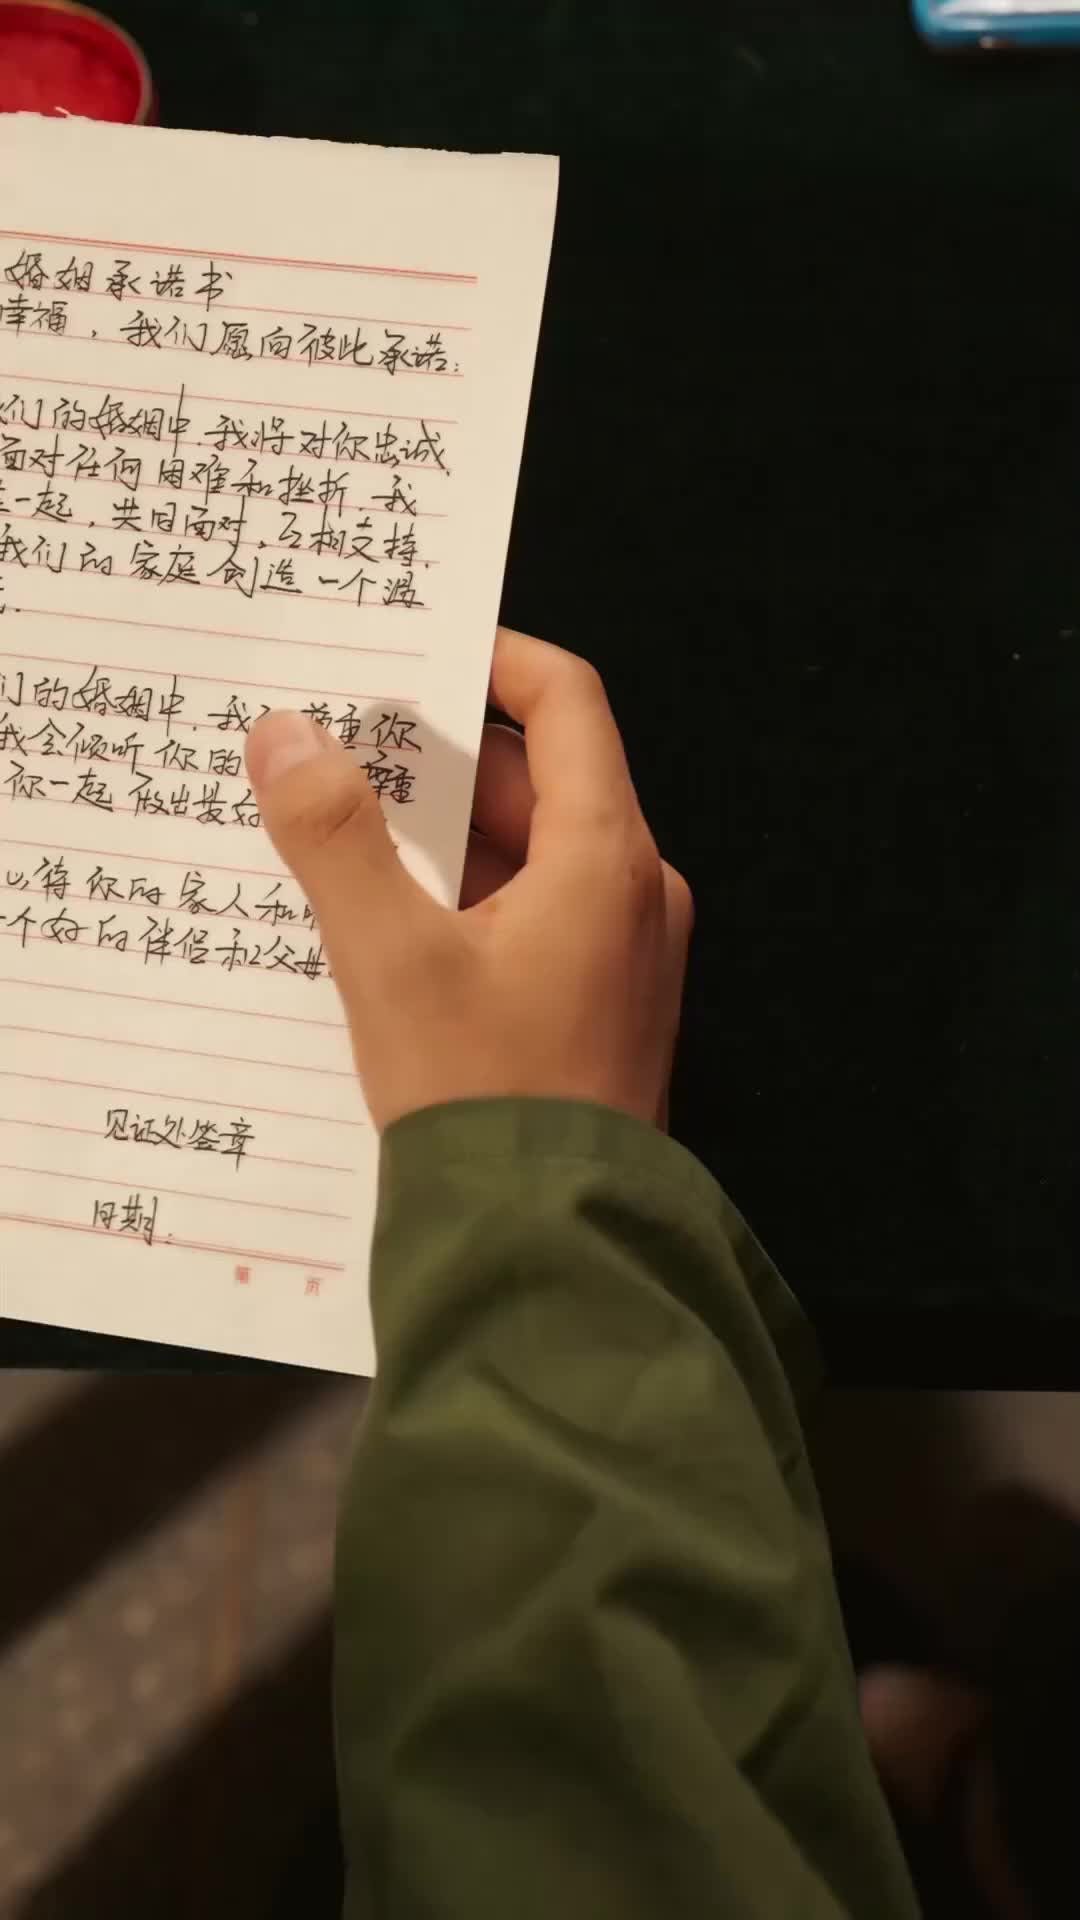 婚姻承诺书
幸福，我们愿向彼此承诺：
们的婚姻中，我将对你忠诚、
面对任何困难和挫折，我
一起，共同面对，互相支持，
我们的家庭创造一个温
们的婚姻中，我 尊重你
我会倾听你的 尊重
你一起做出最好
待你的家人和
一个好的伴侣和父母.
见证处签章
日期：
第 页